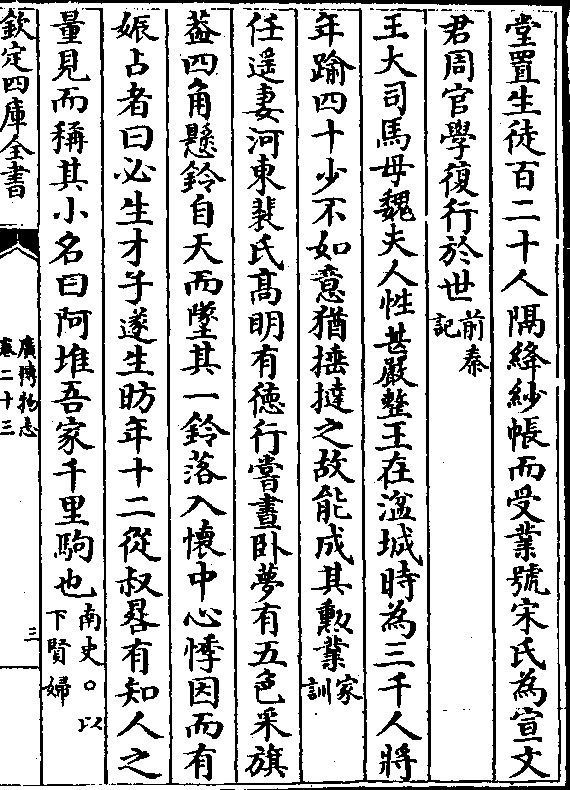 堂置生徒百二十人隔絳紗帳而受業號宋氏為宣文
君周官學復行於世前秦記
王大司馬母魏夫人性甚嚴整王在湓城時為三千人將
年踰四十少不如意猶捶撻之故能成其勲業家訓
任遥妻河東裴氏髙明有徳行嘗晝卧夢有五色采旗
葢四角懸鈴自天而墜其一鈴落入懷中心悸因而有
娠占者曰必生才子遂生昉年十二從叔晷有知人之
量見而稱其小名曰阿堆吾家千里駒也南史○以下賢婦
欽定四庫全書
廣博物志
卷二十三
三